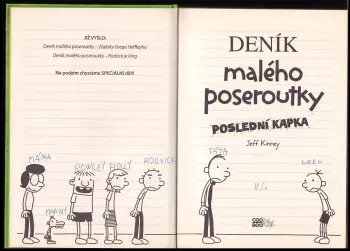 AŽ VYŠLO:
Deník malého poseroutky – Zápisky Grega Heffleyho
Deník malého poseroutky – Rodrick je king
Na podzim chystáme SPECIÁLNÍ díl!!
MÁMA
MANNY
ROWLEY
HOLLY
RODRICK
DENÍK
malého
poseroutky
POSLEDNÍ KAPKA
Jeff Kinney
TÁTA
V.S.
GREG
COO
BOO